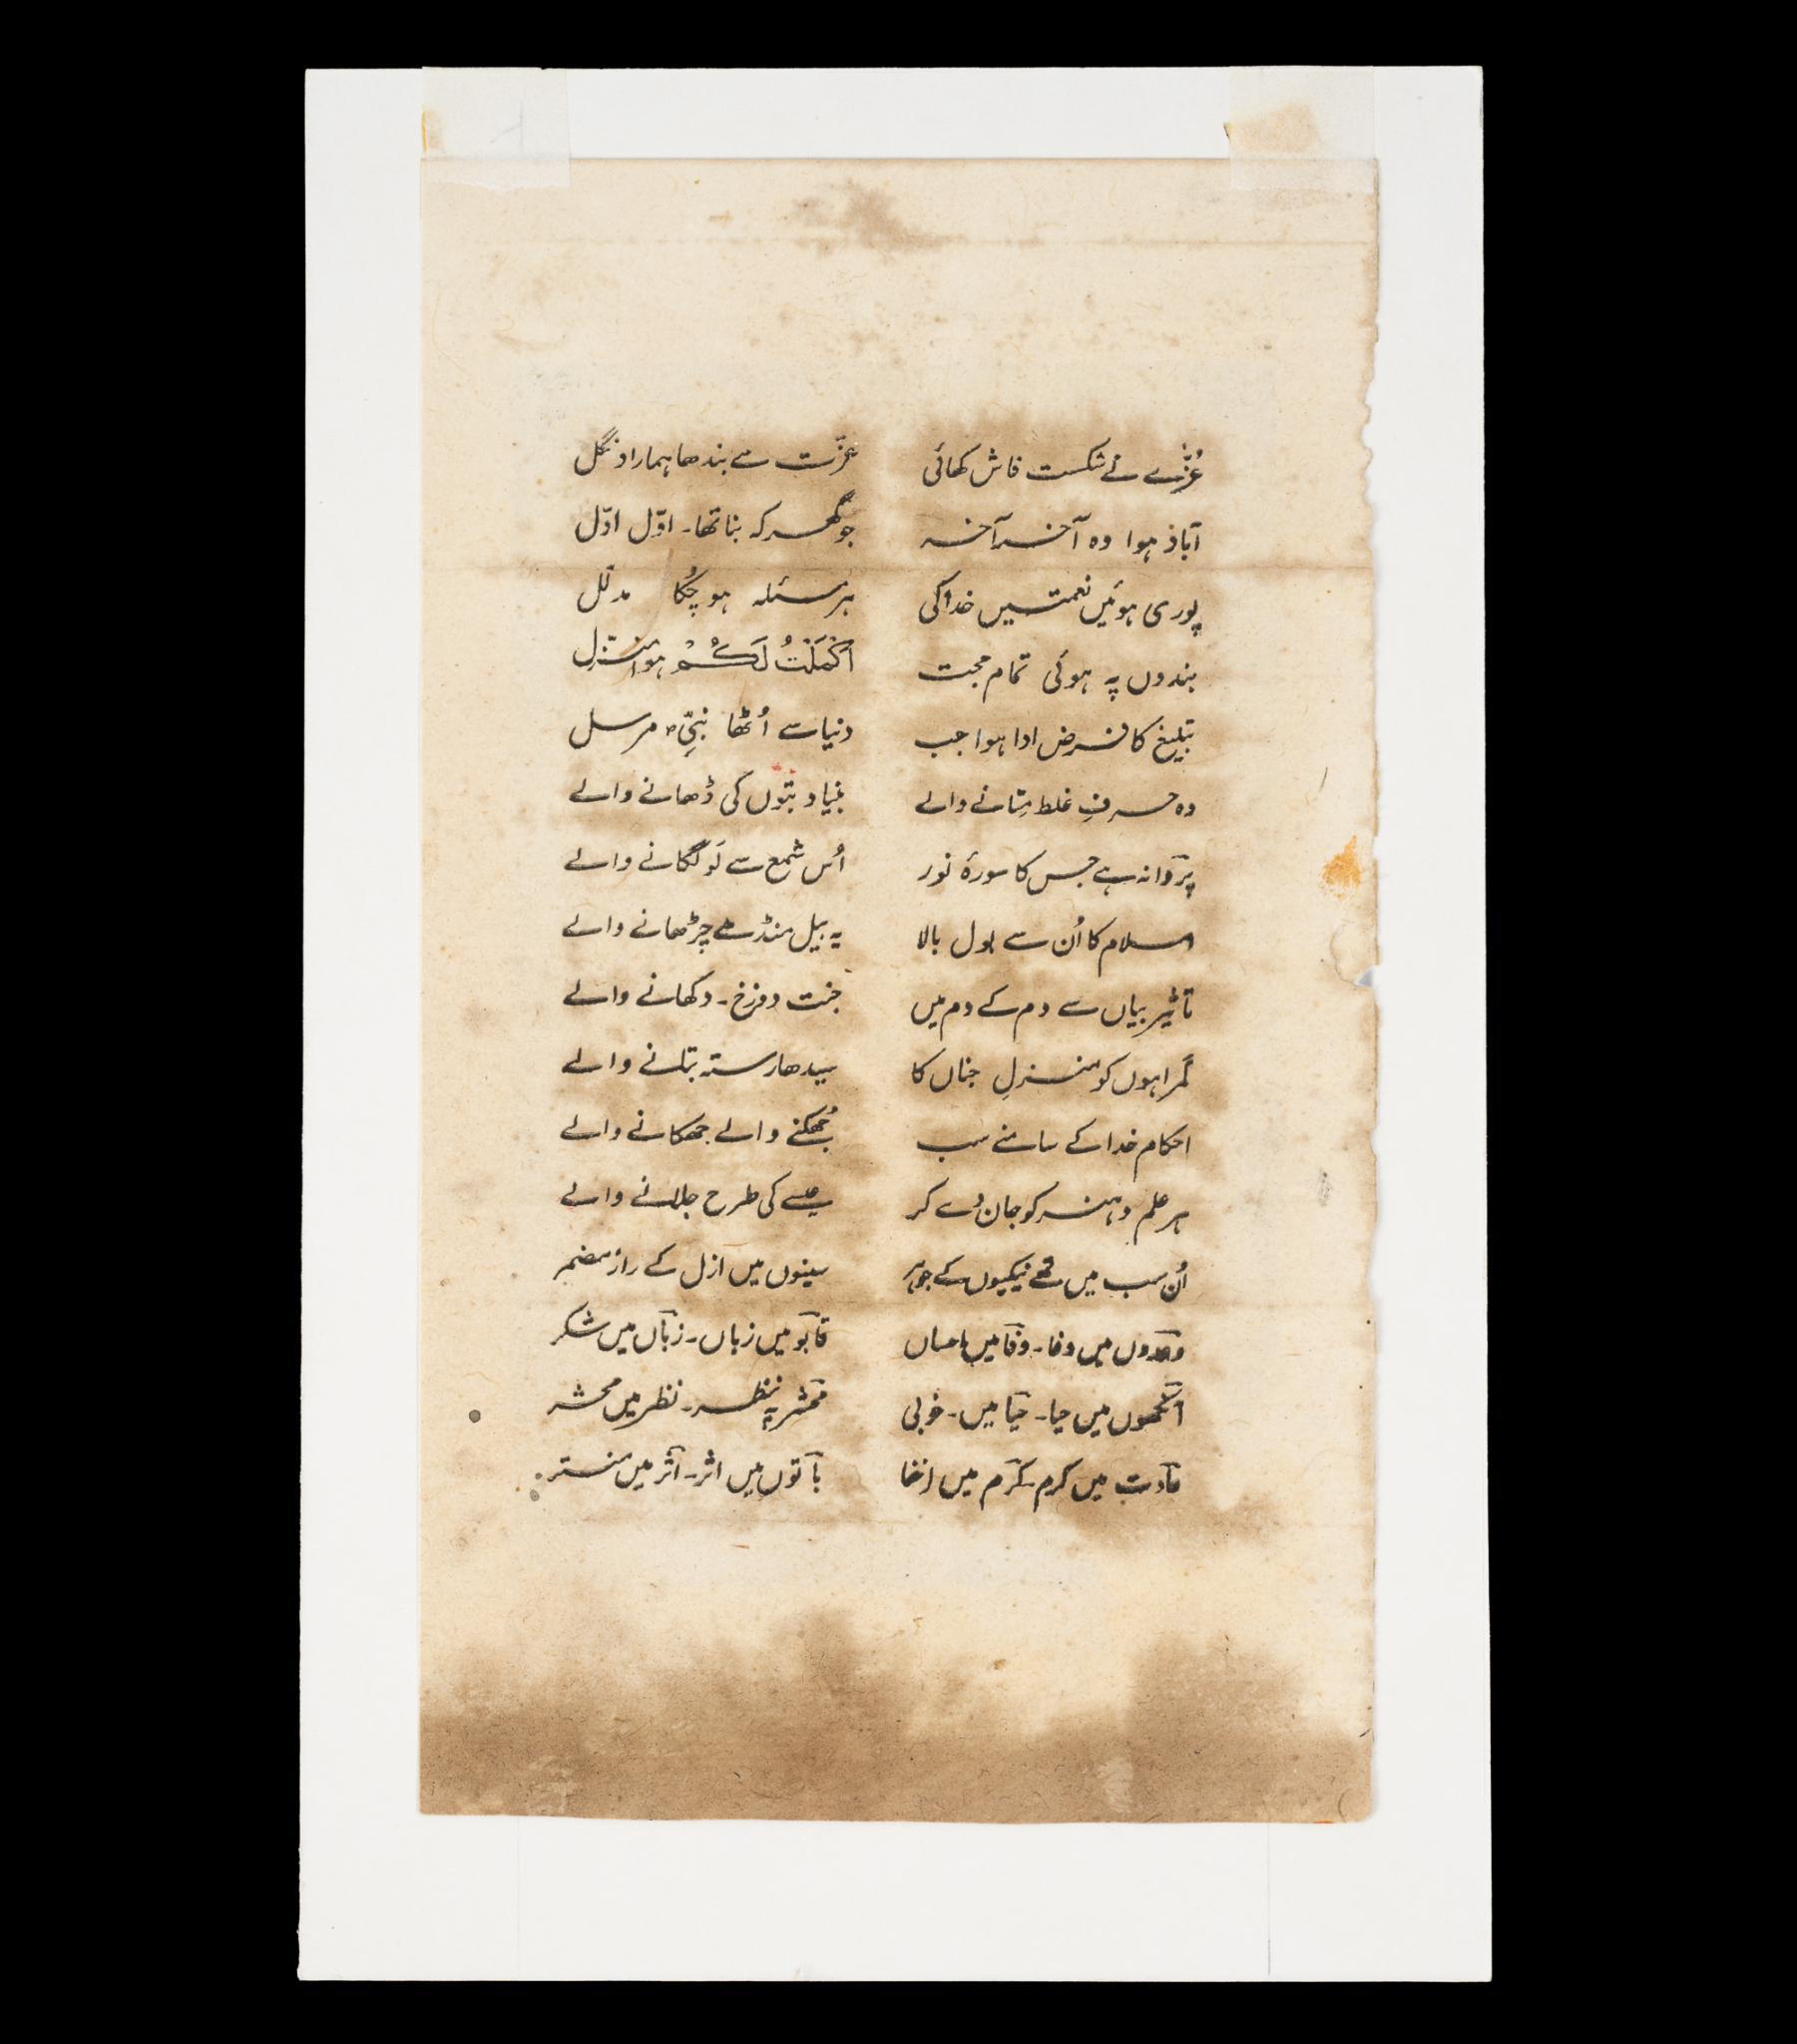 عُزّٰے نے شکست فاش کھائی عزّت سے بندھا ہمارا دنگل
آباد ہوا وہ آخر آخر جو گھر کہ بنا تھا۔ اوّل اوّل
پوری ہوئیں نعمتیں خدا کی ہر مسئلہ ہو چُکا مدلّل
بندوں پہ ہوئی تمام حجت اَکْمَلْتُ لَکُمْ ہوا منزل
تبلیغ کا فرض ادا ہوا جب دنیا سے اُٹھا نبیِّ مرسل
وہ حرفِ غلط مِٹانے والے بنیاد بتوں کی ڈھانے والے
پروانہ ہے جس کا سورۂ نور اُس شمع سے لَو لگانے والے
اسلام کا اُن سے بول بالا یہ بیل منڈھے چڑھانے والے
تاثیر بیاں سے دم کے دم میں جنت دوزخ۔ دکھانے والے
گمراہوں کو منزلِ جناں کا سیدھا رستہ بتانے والے
احکام خدا کے سامنے سب جُھکنے والے جھکانے والے
ہر علم و ہنر کو جان دے کر کی طرح جلانے والے
اُن سب میں تھے نیکیوں کے جوہر سینوں میں ازل کے راز مضمر
وعدوں میں وفا۔ وفا میں احساں قابو میں زباں۔ زباں میں شکر
آنکھوں میں حیا۔ حیا میں۔ خوبی محشر پہ نظر۔ نظر میں محشر
عادت میں کرم۔ کرم میں اخفا باتوں میں اثر۔ اثر میں